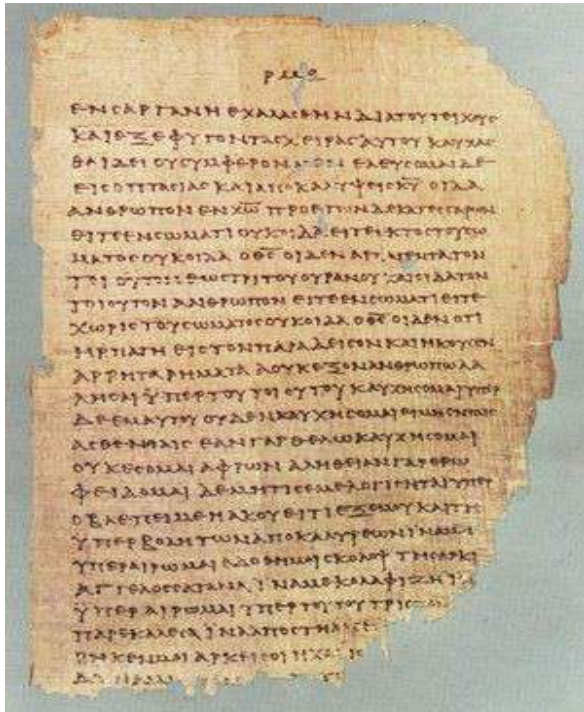 ΕΝϹΑΡΓΑΝΗΕΧΑΛΑϹΘΗΝΔΙΑΤΟΥΤΕΙΧΟΥϹ
ΚΑΙΕΞΕΦΥΓΟΝΤΑϹΧΕΙΡΑϹΑΥΤΟΥΚΑΥΧΑϹ
ΘΑΙΔΕΙΟΥϹΥΜΦΕΡΟΝΜΕΝΕΛΕΥϹΟΜΑΙΔΕ
ΕΙϹΟΠΤΑϹΙΑϹΚΑΙΑΠΟΚΑΛΥΨΕΙϹΚ̅Υ̅ΟΙΔΑ
ΑΝΘΡΩΠΟΝΕΝΧ̅Ω̅ΠΡΟΕΤΩΝΔΕΚΑΤΕϹϹΑΡΩΝ
ΕΙΤΕΕΝϹΩΜΑΤΙΟΥΚΟΙΔΑΕΙΤΕΕΚΤΟϹΤΟΥϹΩ
ΜΑΤΟϹΟΥΚΟΙΔΑΟΘ̅Ϲ̅ΟΙΔΕΝΑΡΠΑΓΕΝΤΑΤΟΝ
ΤΟΙΟΥΤΟΝΕΩϹΤΡΙΤΟΥΟΥΡΑΝΟΥΚΑΙΟΙΔΑΤΟΝ
ΤΟΙΟΥΤΟΝΑΝΘΡΩΠΟΝΕΙΤΕΕΝϹΩΜΑΤΙΕΙΤΕ
ΧΩΡΙϹΤΟΥϹΩΜΑΤΟϹΟΥΚΟΙΔΑΟΘ̅Ϲ̅ΟΙΔΕΝΟΤΙ
ΗΡΠΑΓΗΕΙϹΤΟΝΠΑΡΑΔΕΙϹΟΝΚΑΙΗΚΟΥϹΕΝ
ΑΡΡΗΤΑΡΗΜΑΤΑΑΟΥΚΕΞΟΝΑΝΘΡΩΠΩΛΑ
ΛΗϹΑΙΫΠΕΡΤΟΥΤΟΙΟΥΤΟΥΚΑΥΧΗϹΟΜΑΙΥΠΕΡ
ΔΕΕΜΑΥΤΟΥΟΥΔΕΝΚΑΥΧΗϹΟΜΑΙΕΙΜΗΕΝΤΑΙϹ
ΑϹΘΕΝΕΙΑΙϹΕΑΝΓΑΡΘΕΛΩΚΑΥΧΗϹΟΜΑΙ
ΟΥΚΕϹΟΜΑΙΑΦΡΩΝΑΛΗΘΕΙΑΝΓΑΡΕΡΩ
ΦΕΙΔΟΜΑΙΔΕΜΗΤΙϹΕΜΕΛΟΓΙϹΗΤΑΙΥΠΕΡ
ΟΒΛΕΠΕΙΜΕΗΑΚΟΥΕΙΤΙΕΞΕΜΟΥΚΑΙΤΗ
ΫΠΕΡΒΟΛΗΤΩΝΑΠΟΚΑΛΥΨΕΩΝΙΝΑΜΗ
ΥΠΕΡΑΙΡΩΜΑΙΕΔΟΘΗΜΟΙϹΚΟΛΟΨΤΗϹΑΡΚΙ
ΑΓΓΕΛΟϹϹΑΤΑΝΑΪΝΑΜΕΚΟΛΑΦΙΖΗΙΝ
ΫΠΕΡΑΙΡΩΜΑΙΥΠΕΡΤΟΥΤΟΥΤΡΙϹ
ΠΑΡΕΚΑΛΕϹΑΙΝΑΑΠΟϹΤΗ
ΡΗΚΕΝΜΟΙΑΡΚΕΙϹΟΙΗΧΑΡΙϹ